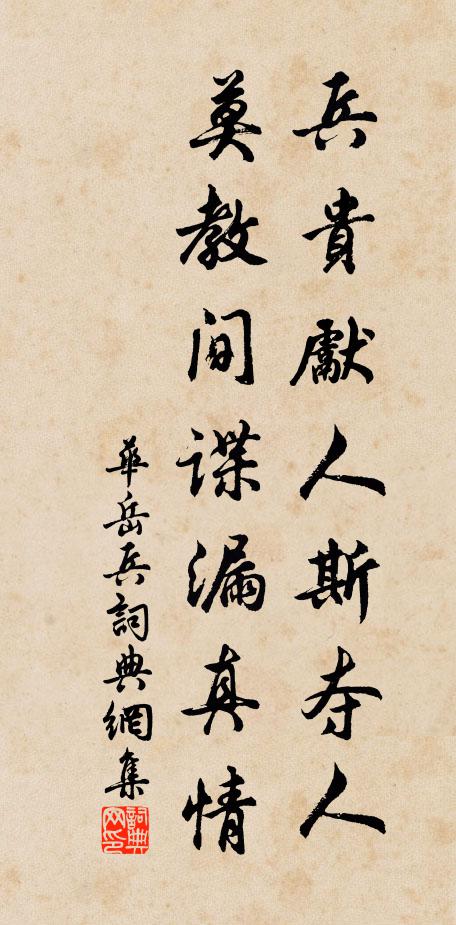 兵貴獻人斯夺人
莫教间谍漏真情
華岳兵詞典網集
詞典网印